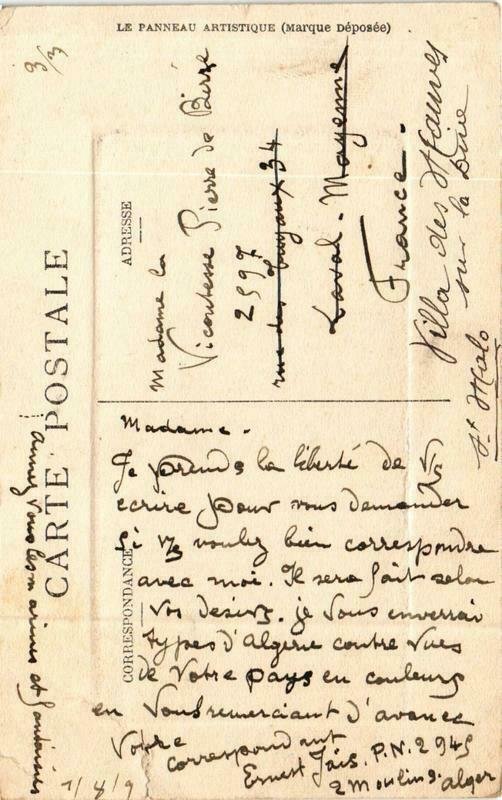 LE PANNEAU ARTISTIQUE (Marque Déposée)
3/3
CARTE POSTALE
ADRESSE
Madame la
Vicomtesse Pierre de
2597
rue des 34
Laval - Mayenne
France.
Villa des
sur la
St Malo
CORRESPONDANCE
Madame.
Je prends la liberté de
ecrire pour vous demander
Si vs voulez bien correspondre
avec moi. Il sera fait selon
vos desirs. je vous enverrai
types d'Algerie contre vues
de Votre pays en couleurs
en Vous remerciant d'avance
Votre correspondant
Ernest Jais. P.N. 2945
2 moulins. alger
aimez vous les marines et fantaisies